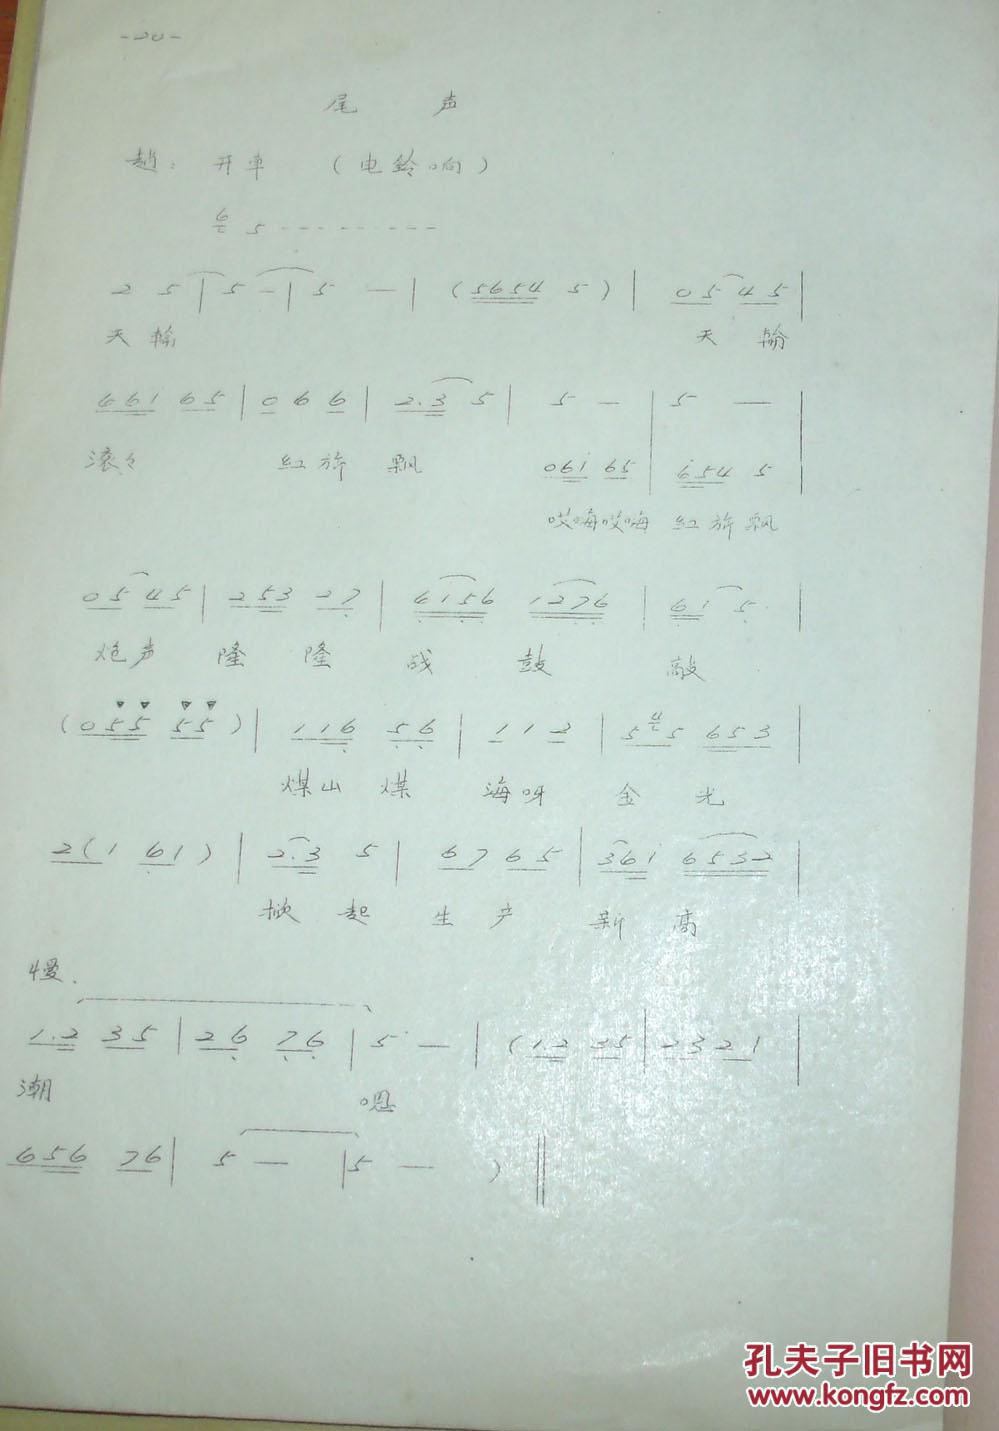 -20-
尾 声
赵: 开車 (电鈴响)
6 5 - - - - - - - - -
2 5 | 5 — | 5 — | (5654 5) | 05 45 |
天轮 天轮
661 65 | 0 6 6 | 2.3 5 | 5 — | 5 — |
滚々 红旂 飘
061 65 | 654 5
哎嗨哎嗨 红旂飘
05 45 | 253 27 | 6156 1276 | 61 5 |
炮声 隆 隆 战 鼓 敲
(055 55) | 116 56 | 1 1 2 | 5 4 5 653 |
煤山 煤 海呀 金 光
2(1 61) | 2.3 5 | 67 65 | 361 6532 |
掀 起 生 产 新 高
慢.
1.2 35 | 26 76 | 5 — | (1.2 35 | 23 21 |
潮 嗯
656 76 | 5 — | 5 — ) ||
孔夫子旧书网
www.kongfz.com